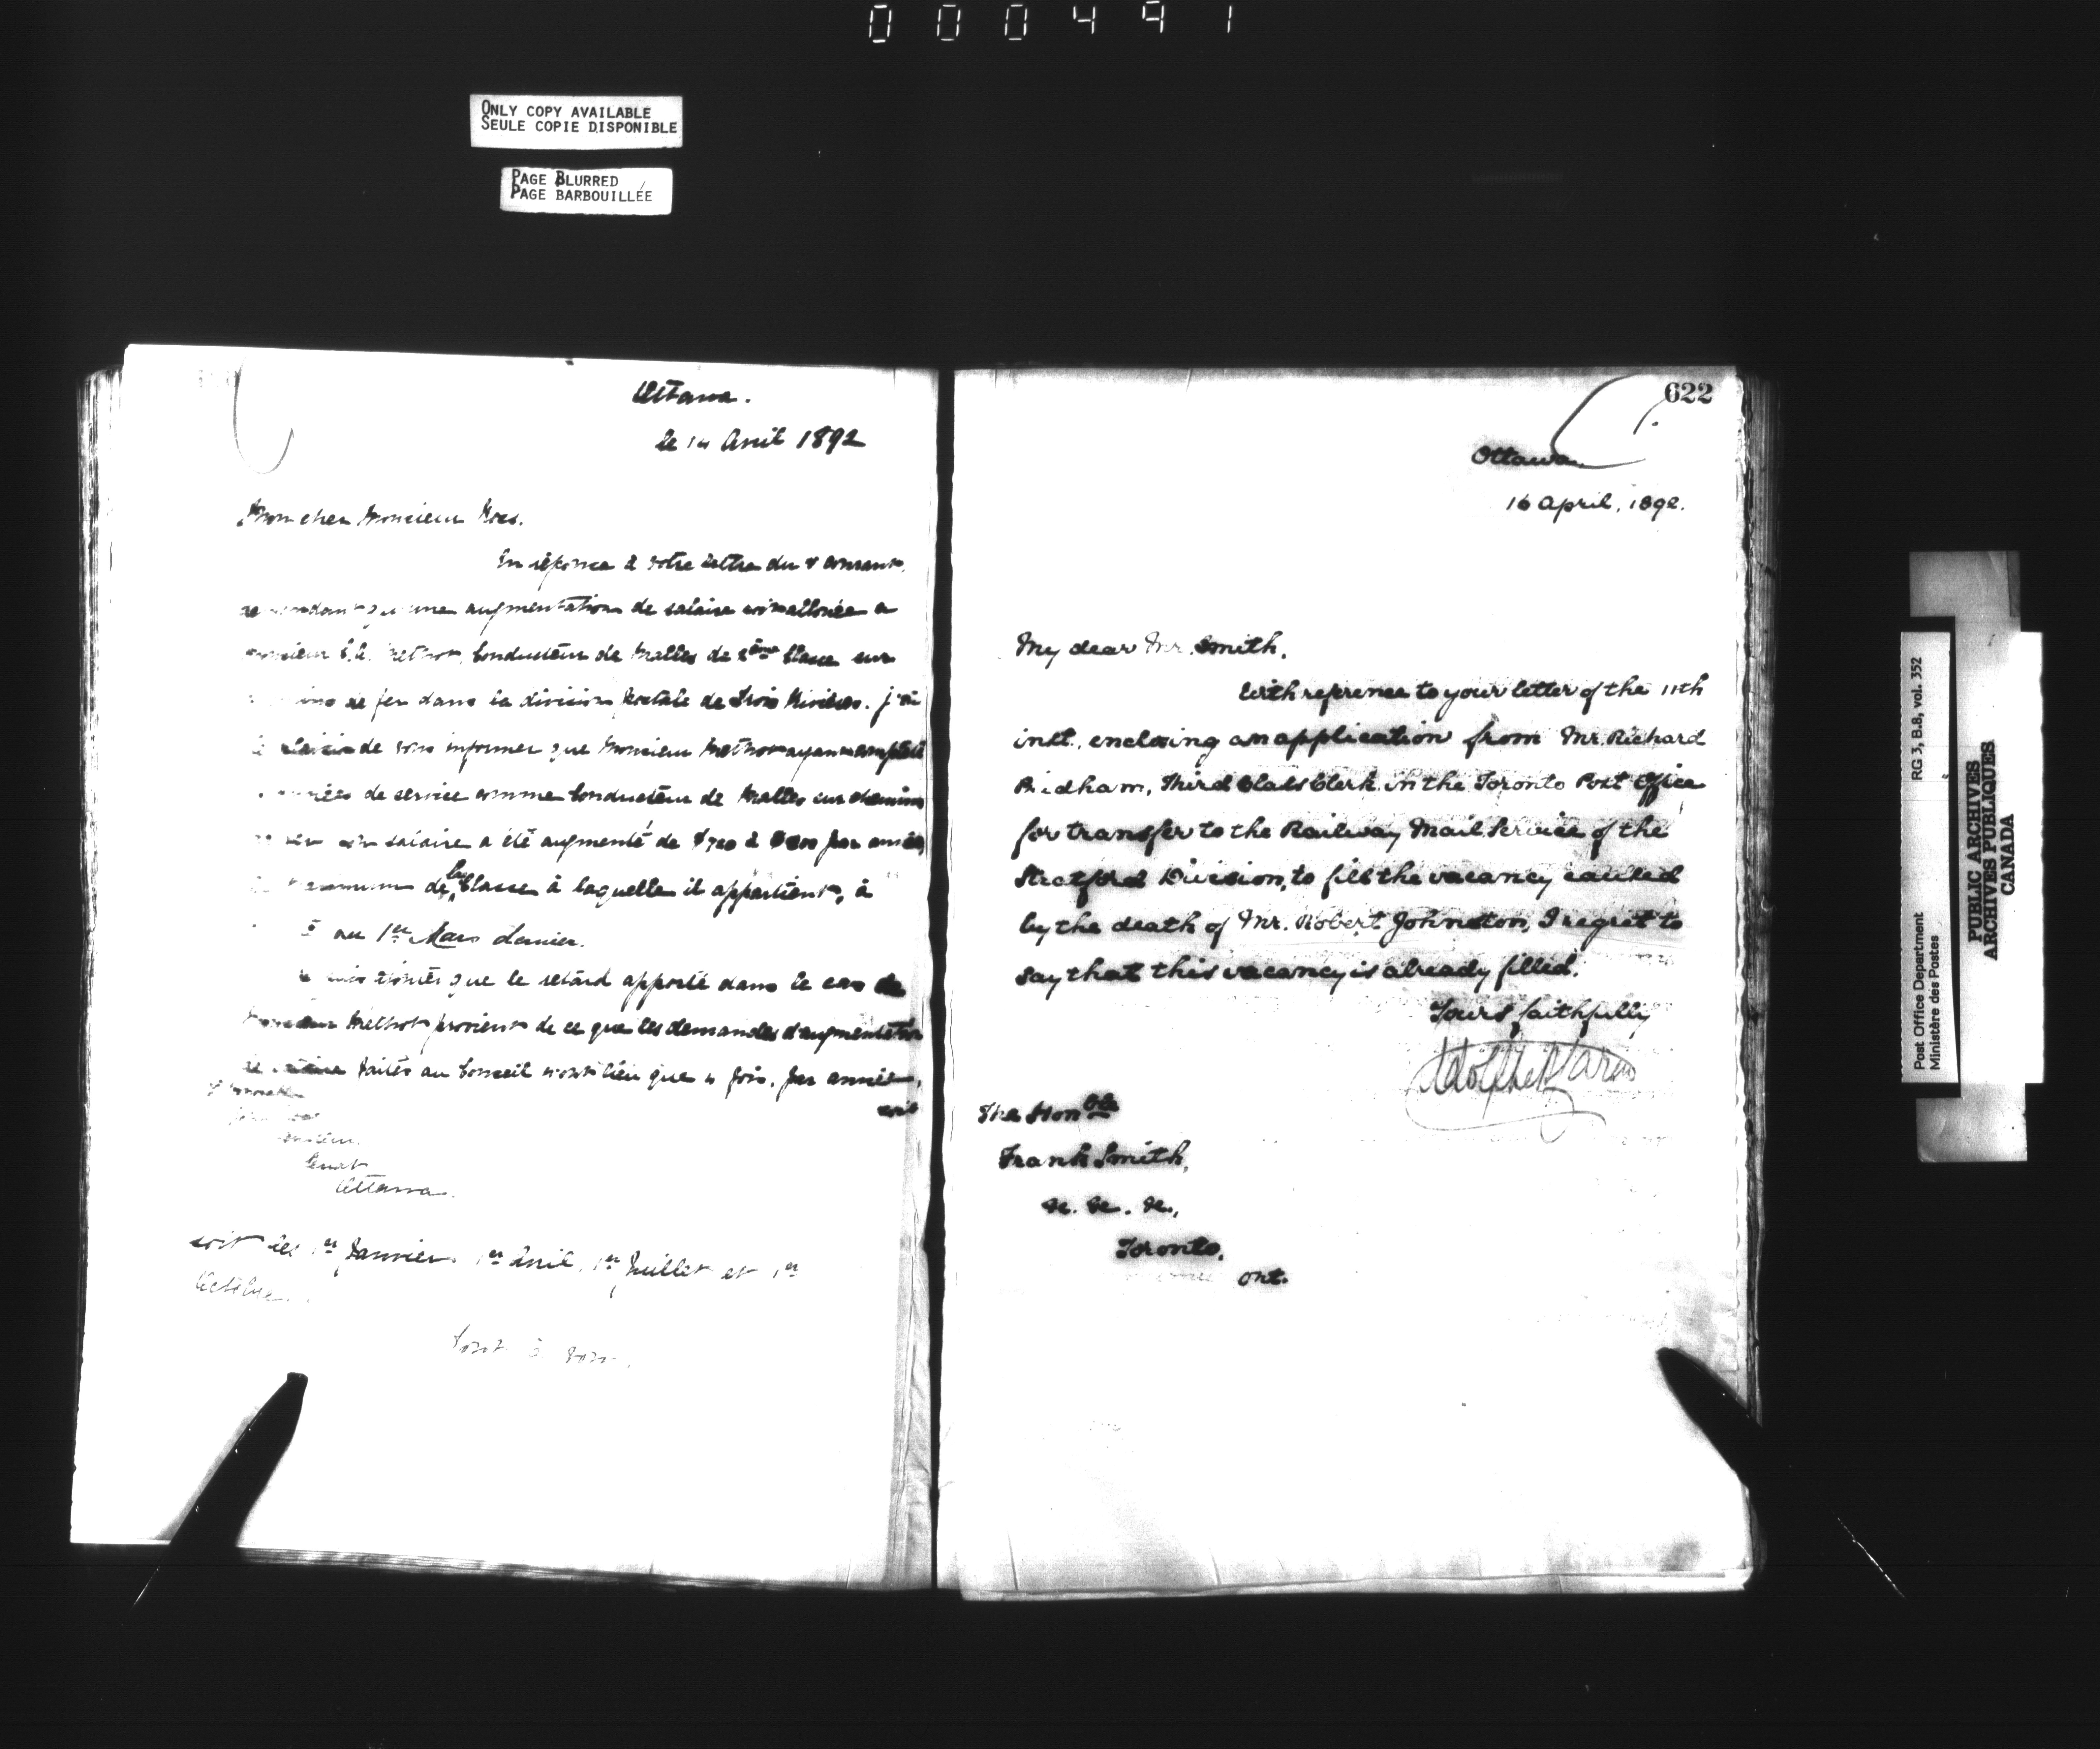 000491
ONLY COPY AVAILABLE
SEULE COPIE DISPONIBLE
PAGE BLURRED
PAGE BARBOUILLÉE
Ottawa.
le 14 Avril 1892
Mon cher Monsieur
En réponse à votre lettre du courant,
une augmentation de salaire soit allouée a
Methot, Conducteur de Malles de 2ème Classe sur
de fer dans la division Postale de Trois Rivières. j'ai
plaisir de vous informer que Monsieur Methot ayant complété
années de service comme Conducteur de Malles sur chemins
son salaire a été augmenté de $720 à $800 par année,
maximum de la Classe à laquelle il appartient, à
au 1er Mars dernier.
que le retard apporté dans le cas de
Monsieur Methot provient de ce que les demandes d'augmentation
de salaire faites au Conseil n'ont lieu que 4 fois par année,
soit
Sénat
Ottawa.
soit les 1er Janvier, 1er Avril, 1er Juillet et 1er
Octobre.
Tout à vous.
622
Ottawa.
16 April, 1892.
My dear Mr. Smith,
With reference to your letter of the 11th
inst., enclosing an application from Mr. Richard
Pridham, Third Class Clerk in the Toronto Post Office
for transfer to the Railway Mail Service of the
Stratford Division, to fill the vacancy caused
by the death of Mr. Robert Johnston, I regret to
say that this vacancy is already filled.
Yours faithfully
Adolphe P. Caron
The Honble
Frank Smith,
&c. &c. &c.,
Toronto,
Ont.
Post Office Department RG 3, B.8, vol. 352
Ministère des Postes
PUBLIC ARCHIVES
ARCHIVES PUBLIQUES
CANADA